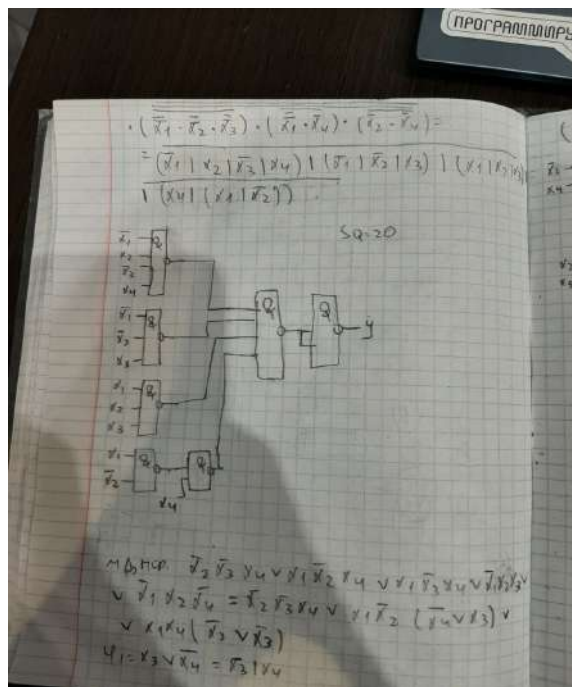 ПРОГРАММИРУ
· (x̅1 · x̅2 · x̅3) · (x̅1 · x̅4) · (x̅2 · x̅4) =
= (x̅1 | x2 | x̅3 | x4) | (x̅1 | x̅2 | x3) | (x1 | x2 | x3)
| (x4 | (x1 | x̅2))
SQ=20
x̅1
x2
x̅3
x4
Q
x̅1
x̅2
x3
Q
Q
Q
y
x1
x2
x3
Q
x1
x̅2
Q
Q
x4
МДНФ. x̅2 x̅3 x4 v x1 x̅2 x4 v x1 x̅3 x4 v x̅1 x2 x3 v
v x̅1 x2 x̅4 = x̅2 x̅3 x4 v x1 x̅2 (x̅4 v x3) v
v x1 x4 (x̅2 v x̅3)
φ1 = x3 v x̅4 = x̅3 | x4